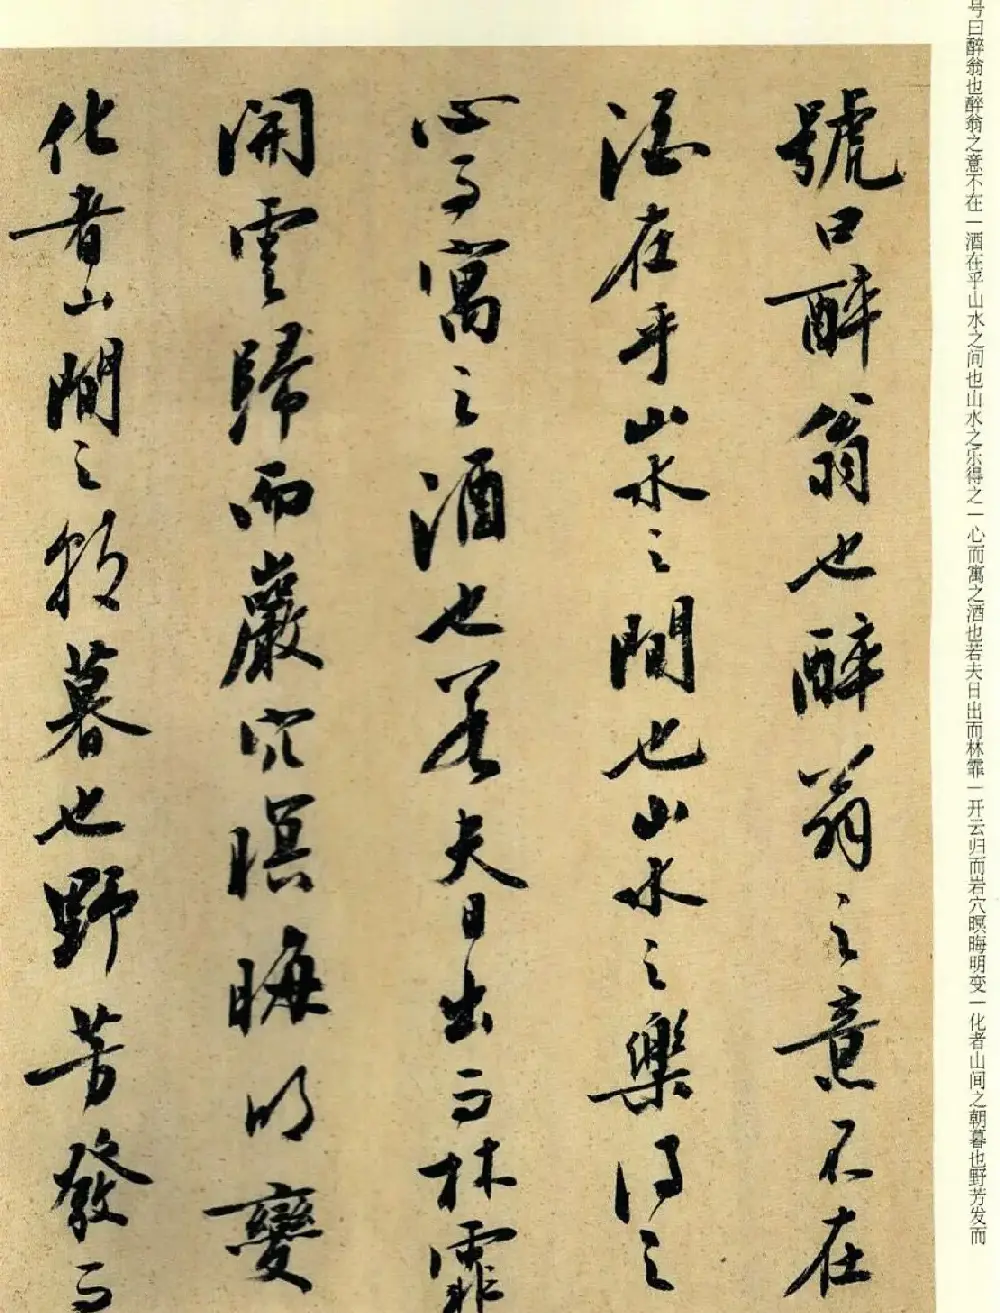 号曰醉翁也醉翁之意不在一酒在乎山水之间也山水之乐得之一心而寓之酒也若夫日出而林霏一开云归而岩穴暝晦明变一化者山间之朝暮也野芳发而
號曰醉翁也醉翁之意不在
酒在乎山水之間也山水之樂得之
心而寓之酒也若夫日出而林霏
開雲歸而巖穴暝晦明變
化者山間之朝暮也野芳發而